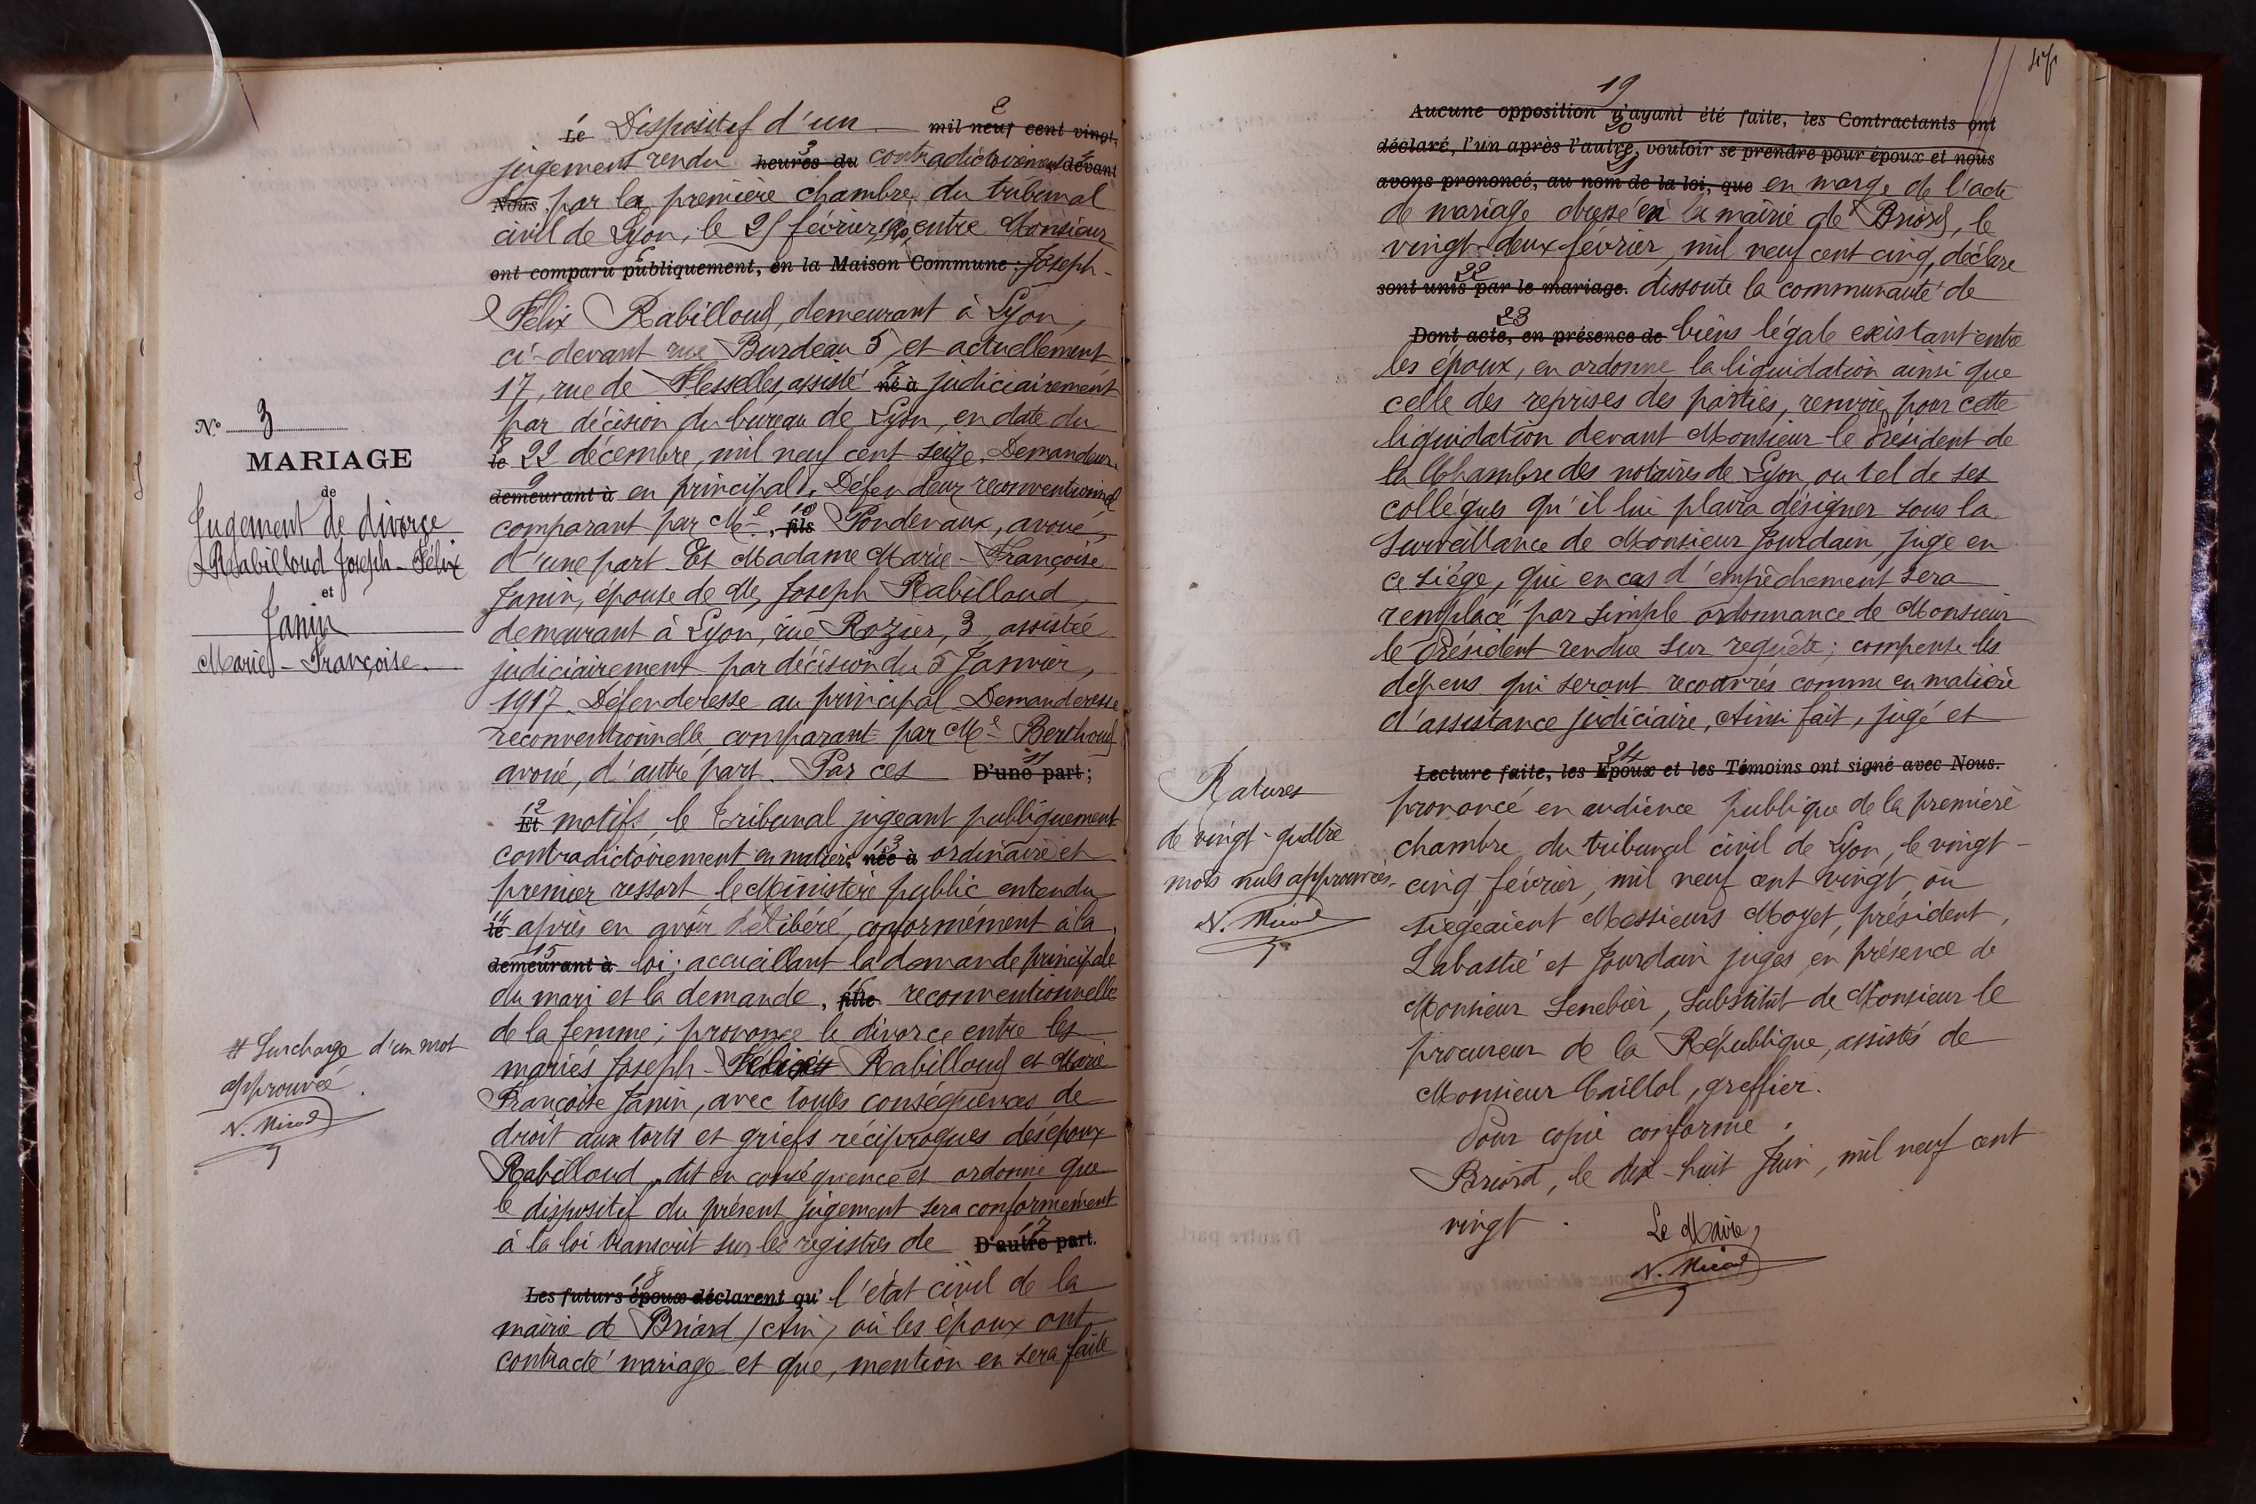 47
N° 3
MARIAGE
de
Jugement de divorce
Rabilloud Joseph-Félix
et
Janin
Marie-Françoise.
# Surcharge d'un mot
approuvée.
N. Nicod
1 2
Le Dispositif d'un mil neuf cent vingt,
3 4
jugement rendu heures du contradictoirement devant
5
Nous par la première chambre du tribunal
civil de Lyon, le 25 février 1920, entre Monsieur
6
ont comparu publiquement, en la Maison Commune : Joseph-
Félix Rabilloud, demeurant à Lyon,
ci-devant rue Burdeau 5, et actuellement
7
17, rue de Flesselles, assisté né à judiciairement
par décision du bureau de Lyon, en date du
8
le 22 décembre, mil neuf cent seize. Demandeur
9
demeurant à en principal, Défendeur reconventionnel
10
comparant par Me, fils Pondevaux, avoué,
d'une part. Et Madame Marie-Françoise
Janin, épouse de M. Joseph Rabilloud,
demeurant à Lyon, rue Rozier, 3, assistée
judiciairement par décision du 5 Janvier,
1917. Défenderesse au principal. Demanderesse
reconventionnelle comparant par Me Berthoud
11
avoué, d'autre part. Par ces D'une part;
12
Et motifs, le Tribunal jugeant publiquement
13
contradictoirement en matière née à ordinaire et
premier ressort, le Ministère public entendu
14
le après en avoir délibéré, conformément à la
15
demeurant à loi; accueillant la demande principale
16
du mari et la demande, fille reconventionnelle
de la femme; prononce le divorce entre les
mariés Joseph-Félix # Rabilloud et Marie
Françoise Janin, avec toutes conséquences de
droit aux torts et griefs réciproques des époux
Rabilloud, dit en conséquence et ordonne que
le dispositif du présent jugement sera conformément
17
à la loi transcrit sur les registres de D'autre part.
18
Les futurs époux déclarent qu' l'état civil de la
mairie de Briord (Ain) où les époux ont
contracté mariage et que, mention en sera faite
19
Aucune opposition n'ayant été faite, les Contractants ont
20
déclaré, l'un après l'autre, vouloir se prendre pour époux et nous
21
avons prononcé, au nom de la loi, que en marge de l'acte
de mariage dressé en la mairie de Briord, le
vingt-deux février, mil neuf cent cinq, déclare
22
sont unis par le mariage. dissoute la communauté de
23
Dont acte, en présence de biens légale existant entre
les époux, en ordonne la liquidation ainsi que
celle des reprises des parties, renvoie pour cette
liquidation devant Monsieur le Président de
la Chambre des notaires de Lyon ou tel de ses
collègues qu'il lui plaira désigner sous la
surveillance de Monsieur Jourdain, juge en
ce siége, qui en cas d'empêchement sera
remplacé par simple ordonnance de Monsieur
le Président rendue sur requête; compense les
dépens qui seront recouvrés comme en matière
d'assistance judiciaire, Ainsi fait, jugé et
24
Lecture faite, les Epoux et les Témoins ont signé avec Nous.
prononcé en audience publique de la première
chambre du tribunal civil de Lyon, le vingt-
cinq février, mil neuf cent vingt, ou
siégeaient Messieurs Moyet, président,
Labastié et Jourdain juges, en présence de
Monsieur Senebier, substitut de Monsieur le
procureur de la République, assistés de
Monsieur Caillol, greffier.
Pour copie conforme,
Briord, le dix-huit Juin, mil neuf cent
vingt.
Le Maire,
N. Nicod
Ratures
de vingt-quatre
mots nuls approuvées.
N. Nicod